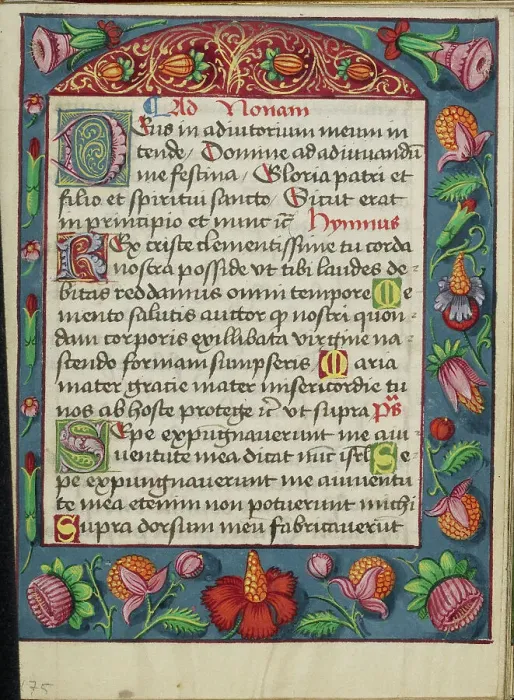 Ad Nonam
Deus in adiutorium meum in
tende / Domine ad adiuvandū
me festina / Gloria patri et
filio et spiritui sancto / Sicut erat
in principio et nunc ić Hymnus
Rex criste clementissime tu corda
nostra posside vt tibi laudes de-
bitas reddamus omni tempore Me
mento salutis auctor q̄ nostri quon-
dam corporis exillibata virgine na-
scendo formam sumpseris Maria
mater gracie mater misericordie tu
nos ab hoste protege ić vt supra Ps̄
Sepe expugnaverunt me a iu-
uentute mea dicat nūc isrl̄ Se
pe expungnaverunt me a iuuentu
te mea etenim non potuerunt michi
Supra dorsum meū fabricauerūt
175